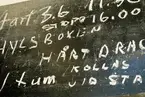 Start 3.6 11.30
STOPP 16.00
HYLSBOXEN
HÅRT DRAG
KOLLAS
1 tum VID STA